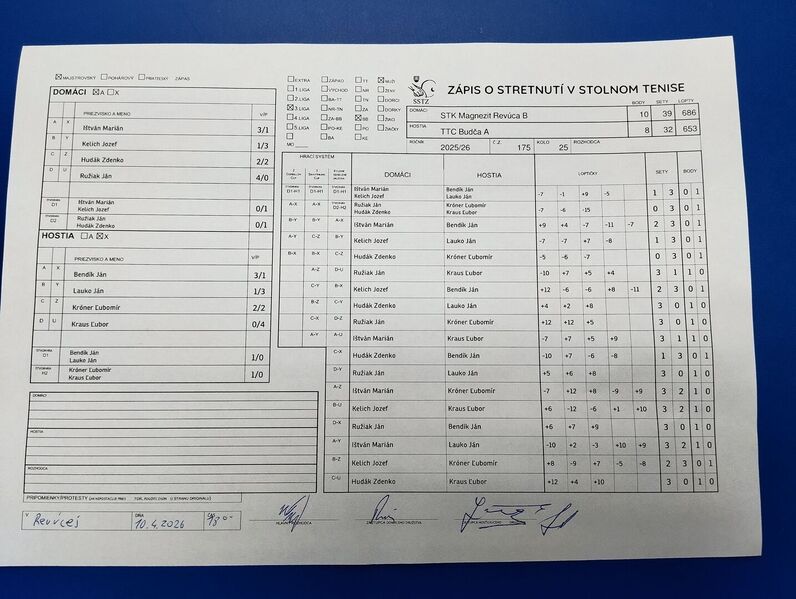 MAJSTROVSKÝ POHÁROVÝ PRIATEĽSKÝ ZÁPAS
DOMÁCI A X
PRIEZVISKO A MENO V/P
A X Ištván Marián 3/1
B Y Kelich Jozef 1/3
C Z Hudák Zdenko 2/2
D U Ružiak Ján 4/0
ŠTVORHRA D1 Ištván Marián Kelich Jozef 0/1
ŠTVORHRA D2 Ružiak Ján Hudák Zdenko 0/1
HOSTIA A X
PRIEZVISKO A MENO V/P
A X Bendík Ján 3/1
B Y Lauko Ján 1/3
C Z Króner Ľubomír 2/2
D U Kraus Ľubor 0/4
ŠTVORHRA D1 Bendík Ján Lauko Ján 1/0
ŠTVORHRA H2 Króner Ľubomír Kraus Ľubor 1/0
DOMÁCI
HOSTIA
ROZHODCA
PRIPOMIENKY/PROTESTY
V Revúcej DŇA 10.4.2026
EXTRA ZÁPAD TT MUŽI
1.LIGA VÝCHOD NR ŽENY
2.LIGA BA-TT TN DORCI
3.LIGA NR-TN ZA DORKY
4.LIGA ZA-BB BB ŽIACI
5.LIGA PO-KE PO ŽIAČKY
BA KE
MO
SSTZ
ZÁPIS O STRETNUTÍ V STOLNOM TENISE
BODY SETY LOPTY
DOMÁCI STK Magnezit Revúca B 10 39 686
HOSTIA TTC Budča A 8 32 653
ROČNÍK 2025/26 Č.Z. 175 KOLO 25 ROZHODCA
HRACÍ SYSTÉM DOMÁCI HOSTIA LOPTIČKY SETY BODY
D1-H1 D1-H1 D1-H1 Ištván Marián Kelich Jozef Bendík Ján Lauko Ján -7 -1 +9 -5 1 3 0 1
A-X A-X D2-H2 Ružiak Ján Hudák Zdenko Króner Ľubomír Kraus Ľubor -7 -6 -15 0 3 0 1
B-Y B-Y A-X Ištván Marián Bendík Ján +9 +4 -7 -11 -7 2 3 0 1
A-Y C-Z B-Y Kelich Jozef Lauko Ján -7 -7 +7 -8 1 3 0 1
B-X B-X C-Z Hudák Zdenko Króner Ľubomír -5 -6 -7 0 3 0 1
A-Z D-U Ružiak Ján Kraus Ľubor -10 +7 +5 +4 3 1 1 0
C-Y B-X Kelich Jozef Bendík Ján +12 -6 -6 +8 -11 2 3 0 1
B-Z C-Y Hudák Zdenko Lauko Ján +4 +2 +8 3 0 1 0
C-X D-Z Ružiak Ján Króner Ľubomír +12 +12 +5 3 0 1 0
A-Y A-U Ištván Marián Kraus Ľubor -7 +7 +5 +9 3 1 1 0
C-X Hudák Zdenko Bendík Ján -10 +7 -6 -8 1 3 0 1
D-Y Ružiak Ján Lauko Ján +5 +6 +8 3 0 1 0
A-Z Ištván Marián Króner Ľubomír -7 +12 +8 -9 +9 3 2 1 0
B-U Kelich Jozef Kraus Ľubor +6 -12 -6 +1 +10 3 2 1 0
D-X Ružiak Ján Bendík Ján +6 +7 +9 3 0 1 0
A-Y Ištván Marián Lauko Ján -10 +2 -3 +10 +9 3 2 1 0
B-Z Kelich Jozef Króner Ľubomír +8 -9 +7 -5 -8 2 3 0 1
C-U Hudák Zdenko Kraus Ľubor +12 +4 +10 3 0 1 0